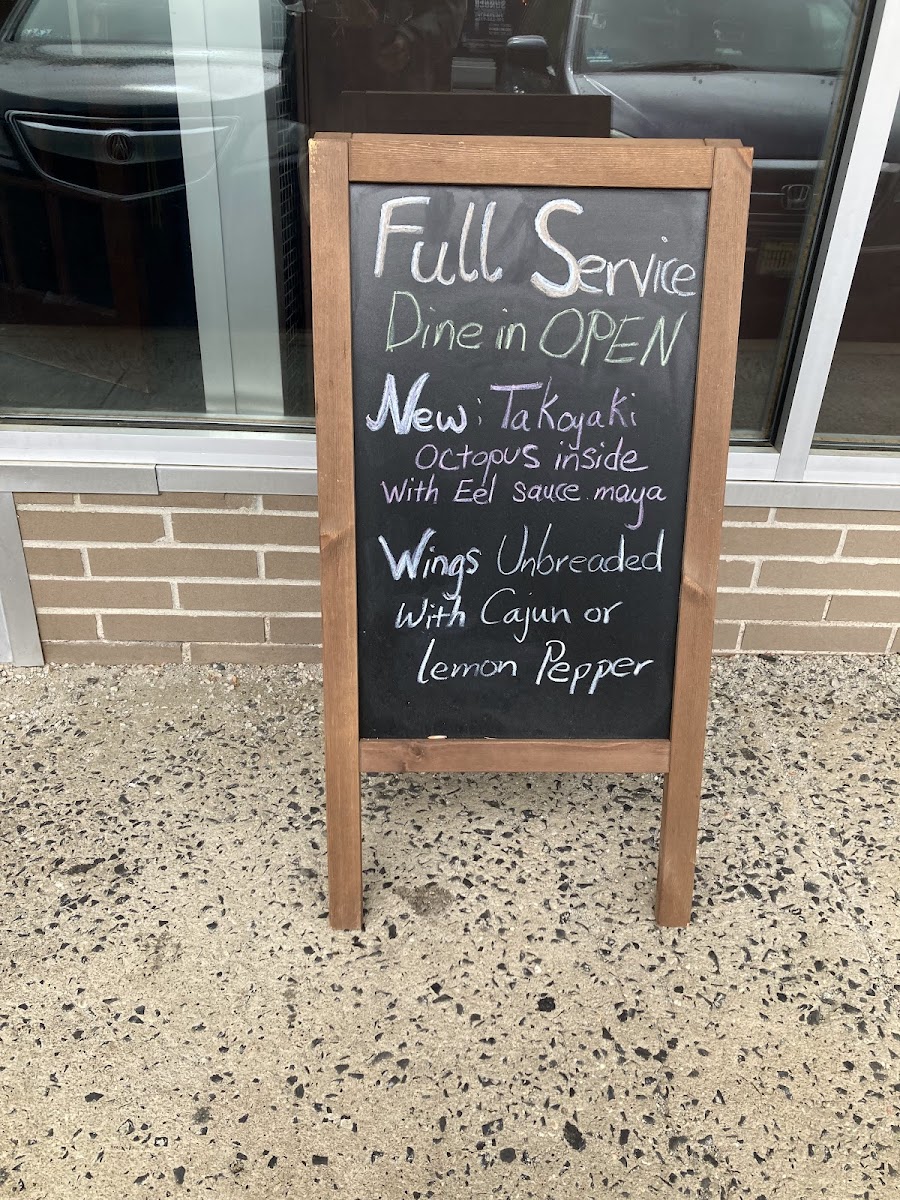 Full Service
Dine in OPEN
New: Takoyaki
octopus inside
With Eel sauce maya
Wings Unbreaded
With Cajun or
lemon Pepper